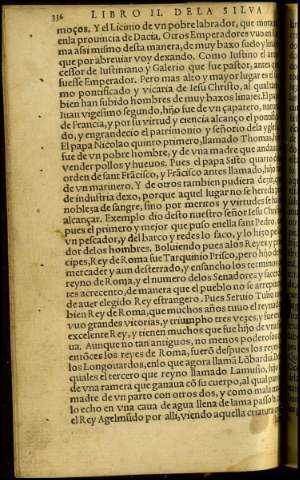 336 LIBRO II. DE LA SILVA
moços. Y el Licinio de vn pobre labrador, que
en la prouincia de Dacia. Otros Emperadores vuo en la
ma assi mismo desta manera, de muy baxo suelo y
que por abreuiar voy dexando. Como Iustino el
cessor de Iustiniano y Galerio que fue pastor, antes que
fuesse Emperador. Pero mas alto y mayor lugar es el
mo pontificado y vicaria de Iesu Christo, al qual
bien han subido hombres de muy baxos linajes. El papa
Iuan vigesimo segundo, hijo fue de vn çapatero, natural
de Francia, y por su virtud y ciencia alcanço el
do, y engrandecio el patrimonio y señorio de la
El papa Nicolao quinto primero, llamado Thomas,
fue de vn pobre hombre, y de vna madre que
vender pollos y hueuos. Pues el papa Sisto quarto
orden de sant Frãcisco, y Frãcisco antes llamado, hijo
de vn marinero. Y de otros tambien pudiera dezir,
de industria dexo, porque aquel lugar no se hereda
nobleza de sangre, sino por meritos y virtudes se ha
alcançar. Exemplo dio desto nuestro señor Iesu
pues el primero y mejor que puso en ella sant Pedro,
vn pescador, y del barco y redes lo saco, y lo hizo
dor de los hombres. Boluiendo pues a los Reyes y
cipes, Rey de Roma fue Tarquinio Prisco, pero hijo de
mercader y aun desterrado, y ensancho los terminos
reyno de Roma, y el numero de los Senadores y
tes acrecento, de manera que el pueblo no se
de auer elegido Rey estrangero. Pues Seruio Tulio
bien Rey de Roma, que muchos años tuuo el reyno
vuo grandes vitorias, y triumpho tres vezes, y fue
excelente Rey, y tienen muchos que fue hijo de
ua. Aunque no tan antiguos, no menos poderosos
entõces los reyes de Roma, fuerõ despues los reyes
los Longouardos, en lo que agora llamã Lõbardia.
quales el tercero que reyno llamado Lamusio, hijo
de vna ramera que ganaua cõ su cuerpo, al qual
madre de vn parto con otros dos, y como mala
lo echo en vna caua de agua llena de lama
el Rey Agelmũdo por alli, viendo aquella criatura